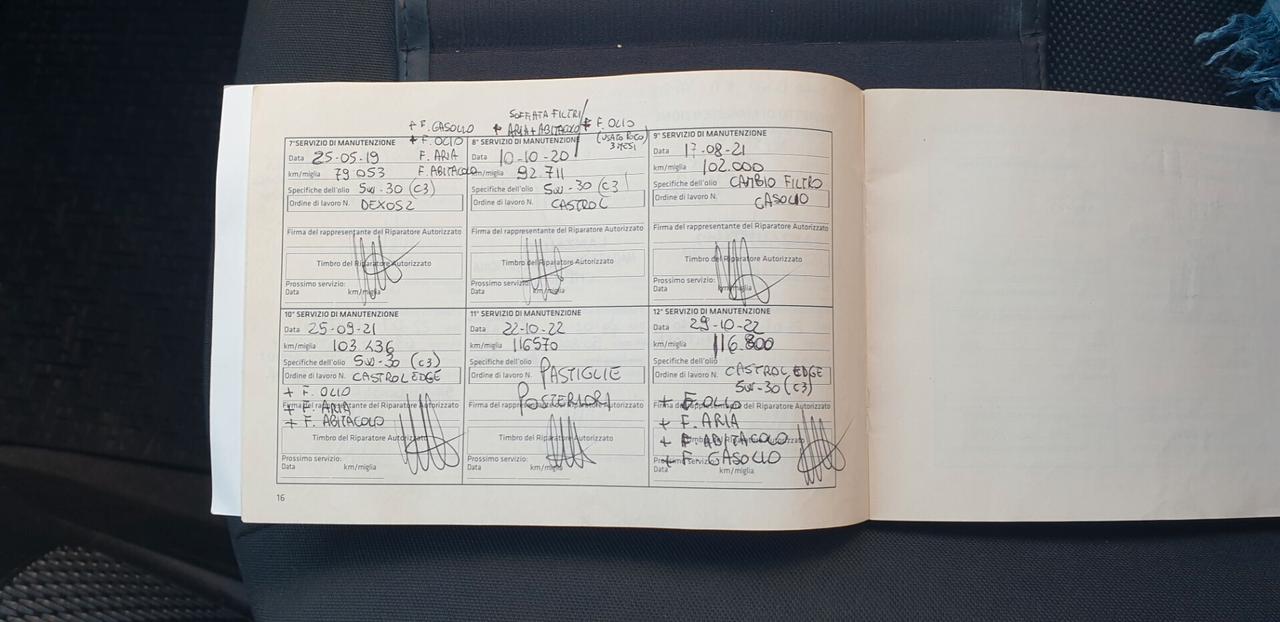 + F. GASOLIO
+ F. OLIO
F. ARIA
F. ABITACOLO
7° SERVIZIO DI MANUTENZIONE
Data 25-05-19
km/miglia 79 053
Specifiche dell'olio 5w-30 (c3)
Ordine di lavoro N. DEXOS 2
Firma del rappresentante del Riparatore Autorizzato
Timbro del Riparatore Autorizzato
Prossimo servizio:
Data km/miglia
SOFFIATA FILTRI
+ ARIA + ABITACOLO
+ F. OLIO
(USATO POCO
3 MESI
8° SERVIZIO DI MANUTENZIONE
Data 10-10-20
km/miglia 92.711
Specifiche dell'olio 5w-30 (c3)
Ordine di lavoro N. CASTROL
Firma del rappresentante del Riparatore Autorizzato
Timbro del Riparatore Autorizzato
Prossimo servizio:
Data km/miglia
9° SERVIZIO DI MANUTENZIONE
Data 17-08-21
km/miglia 102.000
Specifiche dell'olio CAMBIO FILTRO
Ordine di lavoro N. GASOLIO
Firma del rappresentante del Riparatore Autorizzato
Timbro del Riparatore Autorizzato
Prossimo servizio:
Data km/miglia
10° SERVIZIO DI MANUTENZIONE
Data 25-09-21
km/miglia 103.436
Specifiche dell'olio 5w-30 (c3)
Ordine di lavoro N. CASTROL EDGE
+ F. OLIO
Firma del rappresentante del Riparatore Autorizzato
+ F. ARIA
+ F. ABITACOLO
Timbro del Riparatore Autorizzato
Prossimo servizio:
Data km/miglia
11° SERVIZIO DI MANUTENZIONE
Data 22-10-22
km/miglia 116570
Specifiche dell'olio
Ordine di lavoro N. PASTIGLIE
POSTERIORI
Firma del rappresentante del Riparatore Autorizzato
Timbro del Riparatore Autorizzato
Prossimo servizio:
Data km/miglia
12° SERVIZIO DI MANUTENZIONE
Data 29-10-22
km/miglia 116.800
Specifiche dell'olio
Ordine di lavoro N. CASTROL EDGE
5w-30 (c3)
+ F. OLIO
Firma del rappresentante del Riparatore Autorizzato
+ F. ARIA
+ F. ABITACOLO
Timbro del Riparatore Autorizzato
+ F. GASOLIO
Prossimo servizio:
Data km/miglia
16